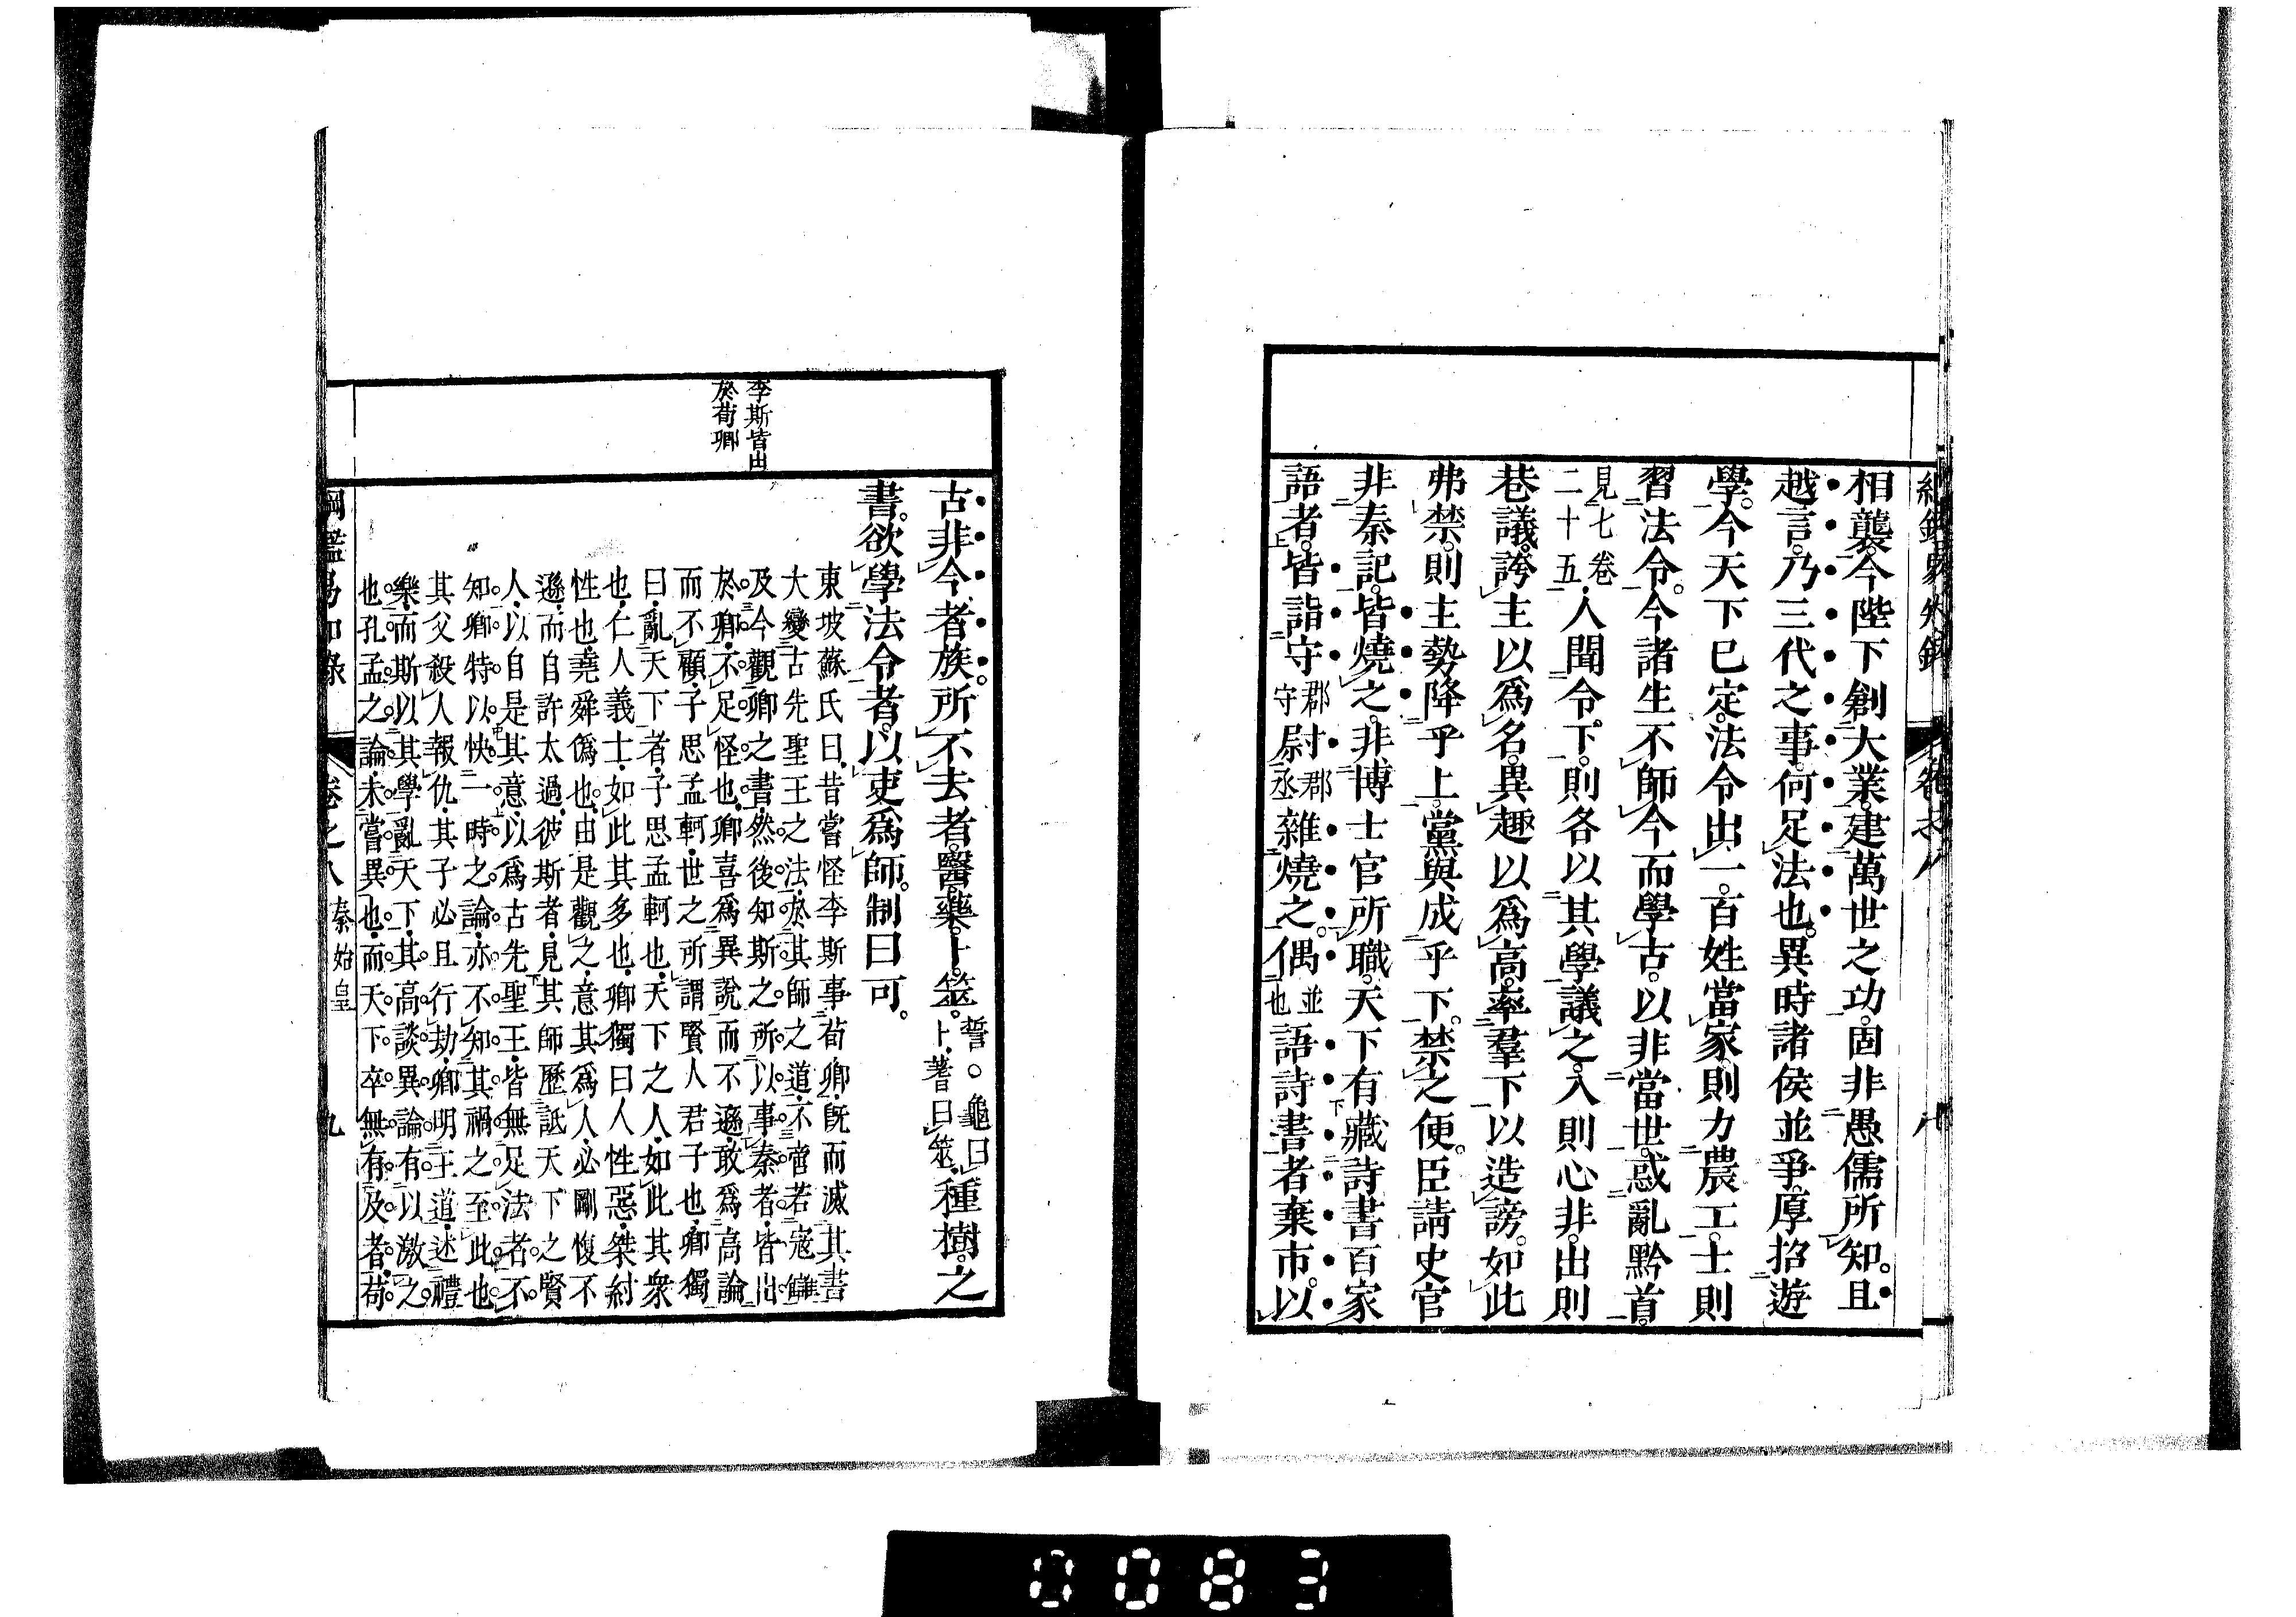 相襲。今陛下創大業。建萬世之功。固非愚儒所知。且
越言。乃三代之事。何足法也。異時諸侯並爭。厚招遊
學。今天下已定。法令出一。百姓當家。則力農工。士則
習法令。今諸生不師今而學古。以非當世。惑亂黔首。
見七卷二十五人聞令下。則各以其學議之。入則心非。出則
巷議。誇主以爲名。異趣以爲高。率羣下以造謗。如此
弗禁。則主勢降乎上。黨與成乎下。禁之便。臣請史官
非秦記。皆燒之。非博士官所職。天下有藏詩書百家
語者。皆詣守郡守尉郡丞雜燒之。偶並也語詩書者棄市。以
卷之八
八
李斯皆出
於荀卿
古非今者族。所不去者。醫藥。卜。筮。誓。龜曰卜。蓍曰筮。種樹。之
書。欲學法令者。以吏爲師。制曰可。
東坡蘇氏曰。昔嘗怪李斯事荀卿。旣而滅其書
大變古先聖王之法。於其師之道。不啻若寇讎
及今觀卿之書。然後知斯之所以事秦者。皆出
於卿。不足怪也。卿喜爲異說而不遜。敢爲高論
而不顧。子思孟軻。世之所謂賢人君子也。卿獨
曰。亂天下者。子思孟軻也。天下之人。如此其衆
也。仁人義士。如此其多也。卿獨曰人性惡。桀紂
性也。堯舜僞也。由是觀之。意其爲人。必剛愎不
遜。而自許太過。彼斯者。見其師歷詆天下之賢
人。以自是其意。以爲古先聖王。皆無足法者。不
知卿特以快一時之論。亦不知其禍之至此也。
其父殺人報仇。其子必且行劫。卿明王道。述禮
樂。而斯以其學亂天下。其高談異論。有以激之
也。孔孟之論。未嘗異也。而天下卒無有及者。荀
綱鑑易知錄 卷之八 秦始皇 九
0083